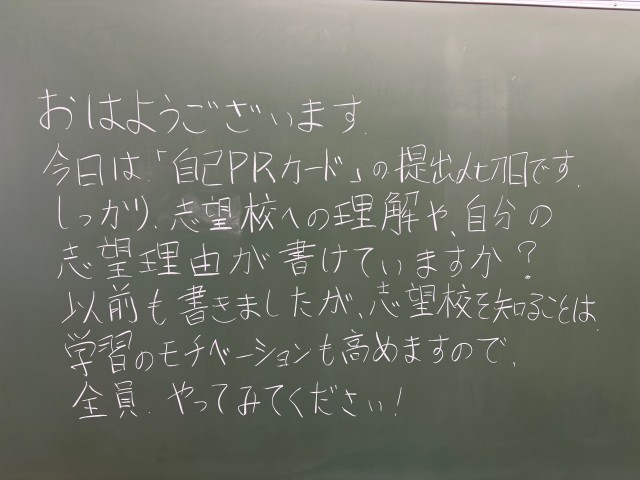 おはようございます.
今日は「自己PRカード」の提出〆切日です.
しっかり、志望校への理解や、自分の
志望理由が書けていますか?
以前も書きましたが、志望校を知ることは、
学習のモチベーションも高めますので、
全員、やってみてください!